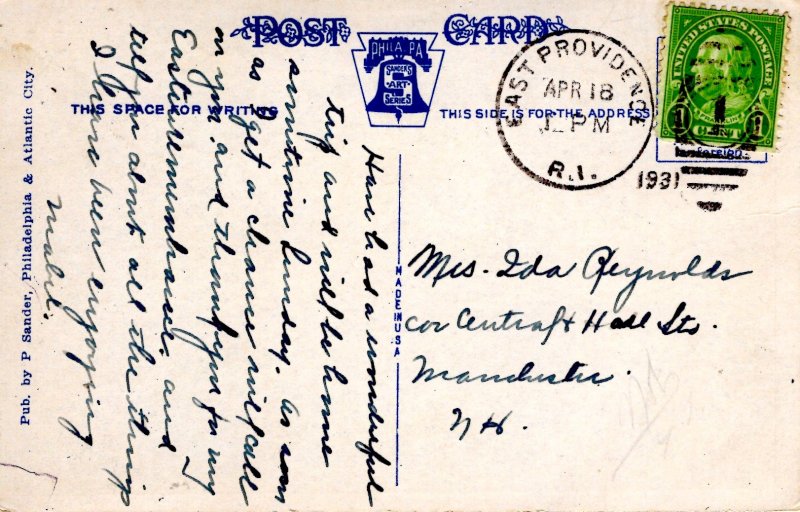 POST CARD
PHILA PA.
SANDERS
S
ART
SERIES
THIS SPACE FOR WRITING
THIS SIDE IS FOR THE ADDRESS
EAST PROVIDENCE
APR 18
PM
R.I.
1931
UNITED STATES POSTAGE
FRANKLIN
1 CENT 1
MADE IN USA
Pub. by P Sander, Philadelphia & Atlantic City.
Have had a wonderful
trip and will be home
sometime Sunday. As soon
as I get a chance will call
on you and thank you for my
Easter remembrance. and
tell you about all the things
I have been enjoying
Mabel.
Mrs. Ida Reynolds
cor Central & Hall Sts.
Manchester.
N.H.